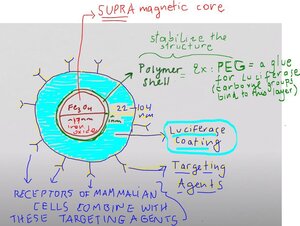 SUPRA magnetic core
stabilize the
structure
Polymer = Ex: PEG = a glue
shell
for Luciferase
(carboxyl groups
bind to this layer)
Fe3O4
iron
oxide
22-104
nm
nm
Luciferase
Coating
Targeting
Agents
RECEPTORS OF MAMMALIAN
CELLS COMBINE WITH
THESE TARGETING AGENTS